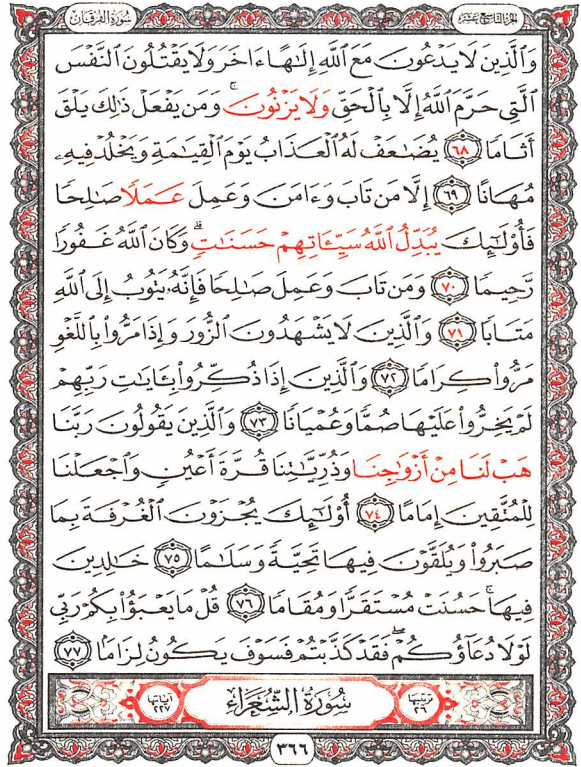 الجزء التاسع عشر سورة الفرقان
وَٱلَّذِينَ لَا يَدْعُونَ مَعَ ٱللَّهِ إِلَـٰهًا ءَاخَرَ وَلَا يَقْتُلُونَ ٱلنَّفْسَ
ٱلَّتِى حَرَّمَ ٱللَّهُ إِلَّا بِٱلْحَقِّ وَلَا يَزْنُونَ ۚ وَمَن يَفْعَلْ ذَٰلِكَ يَلْقَ
أَثَامًا ٦٨ يُضَـٰعَفْ لَهُ ٱلْعَذَابُ يَوْمَ ٱلْقِيَـٰمَةِ وَيَخْلُدْ فِيهِۦ
مُهَانًا ٦٩ إِلَّا مَن تَابَ وَءَامَنَ وَعَمِلَ عَمَلًا صَـٰلِحًا
فَأُو۟لَـٰٓئِكَ يُبَدِّلُ ٱللَّهُ سَيِّـَٔاتِهِمْ حَسَنَـٰتٍ ۗ وَكَانَ ٱللَّهُ غَفُورًا
رَّحِيمًا ٧٠ وَمَن تَابَ وَعَمِلَ صَـٰلِحًا فَإِنَّهُۥ يَتُوبُ إِلَى ٱللَّهِ
مَتَابًا ٧١ وَٱلَّذِينَ لَا يَشْهَدُونَ ٱلزُّورَ وَإِذَا مَرُّوا۟ بِٱللَّغْوِ
مَرُّوا۟ كِرَامًا ٧٢ وَٱلَّذِينَ إِذَا ذُكِّرُوا۟ بِـَٔايَـٰتِ رَبِّهِمْ
لَمْ يَخِرُّوا۟ عَلَيْهَا صُمًّا وَعُمْيَانًا ٧٣ وَٱلَّذِينَ يَقُولُونَ رَبَّنَا
هَبْ لَنَا مِنْ أَزْوَٰجِنَا وَذُرِّيَّـٰتِنَا قُرَّةَ أَعْيُنٍ وَٱجْعَلْنَا
لِلْمُتَّقِينَ إِمَامًا ٧٤ أُو۟لَـٰٓئِكَ يُجْزَوْنَ ٱلْغُرْفَةَ بِمَا
صَبَرُوا۟ وَيُلَقَّوْنَ فِيهَا تَحِيَّةً وَسَلَـٰمًا ٧٥ خَـٰلِدِينَ
فِيهَا ۚ حَسُنَتْ مُسْتَقَرًّا وَمُقَامًا ٧٦ قُلْ مَا يَعْبَؤُا۟ بِكُمْ رَبِّى
لَوْلَا دُعَآؤُكُمْ ۖ فَقَدْ كَذَّبْتُمْ فَسَوْفَ يَكُونُ لِزَامًا ٧٧
ترتيبها ٢٦ سُورَةُ الشُّعَرَاءِ آياتها ٢٢٧
٣٦٦